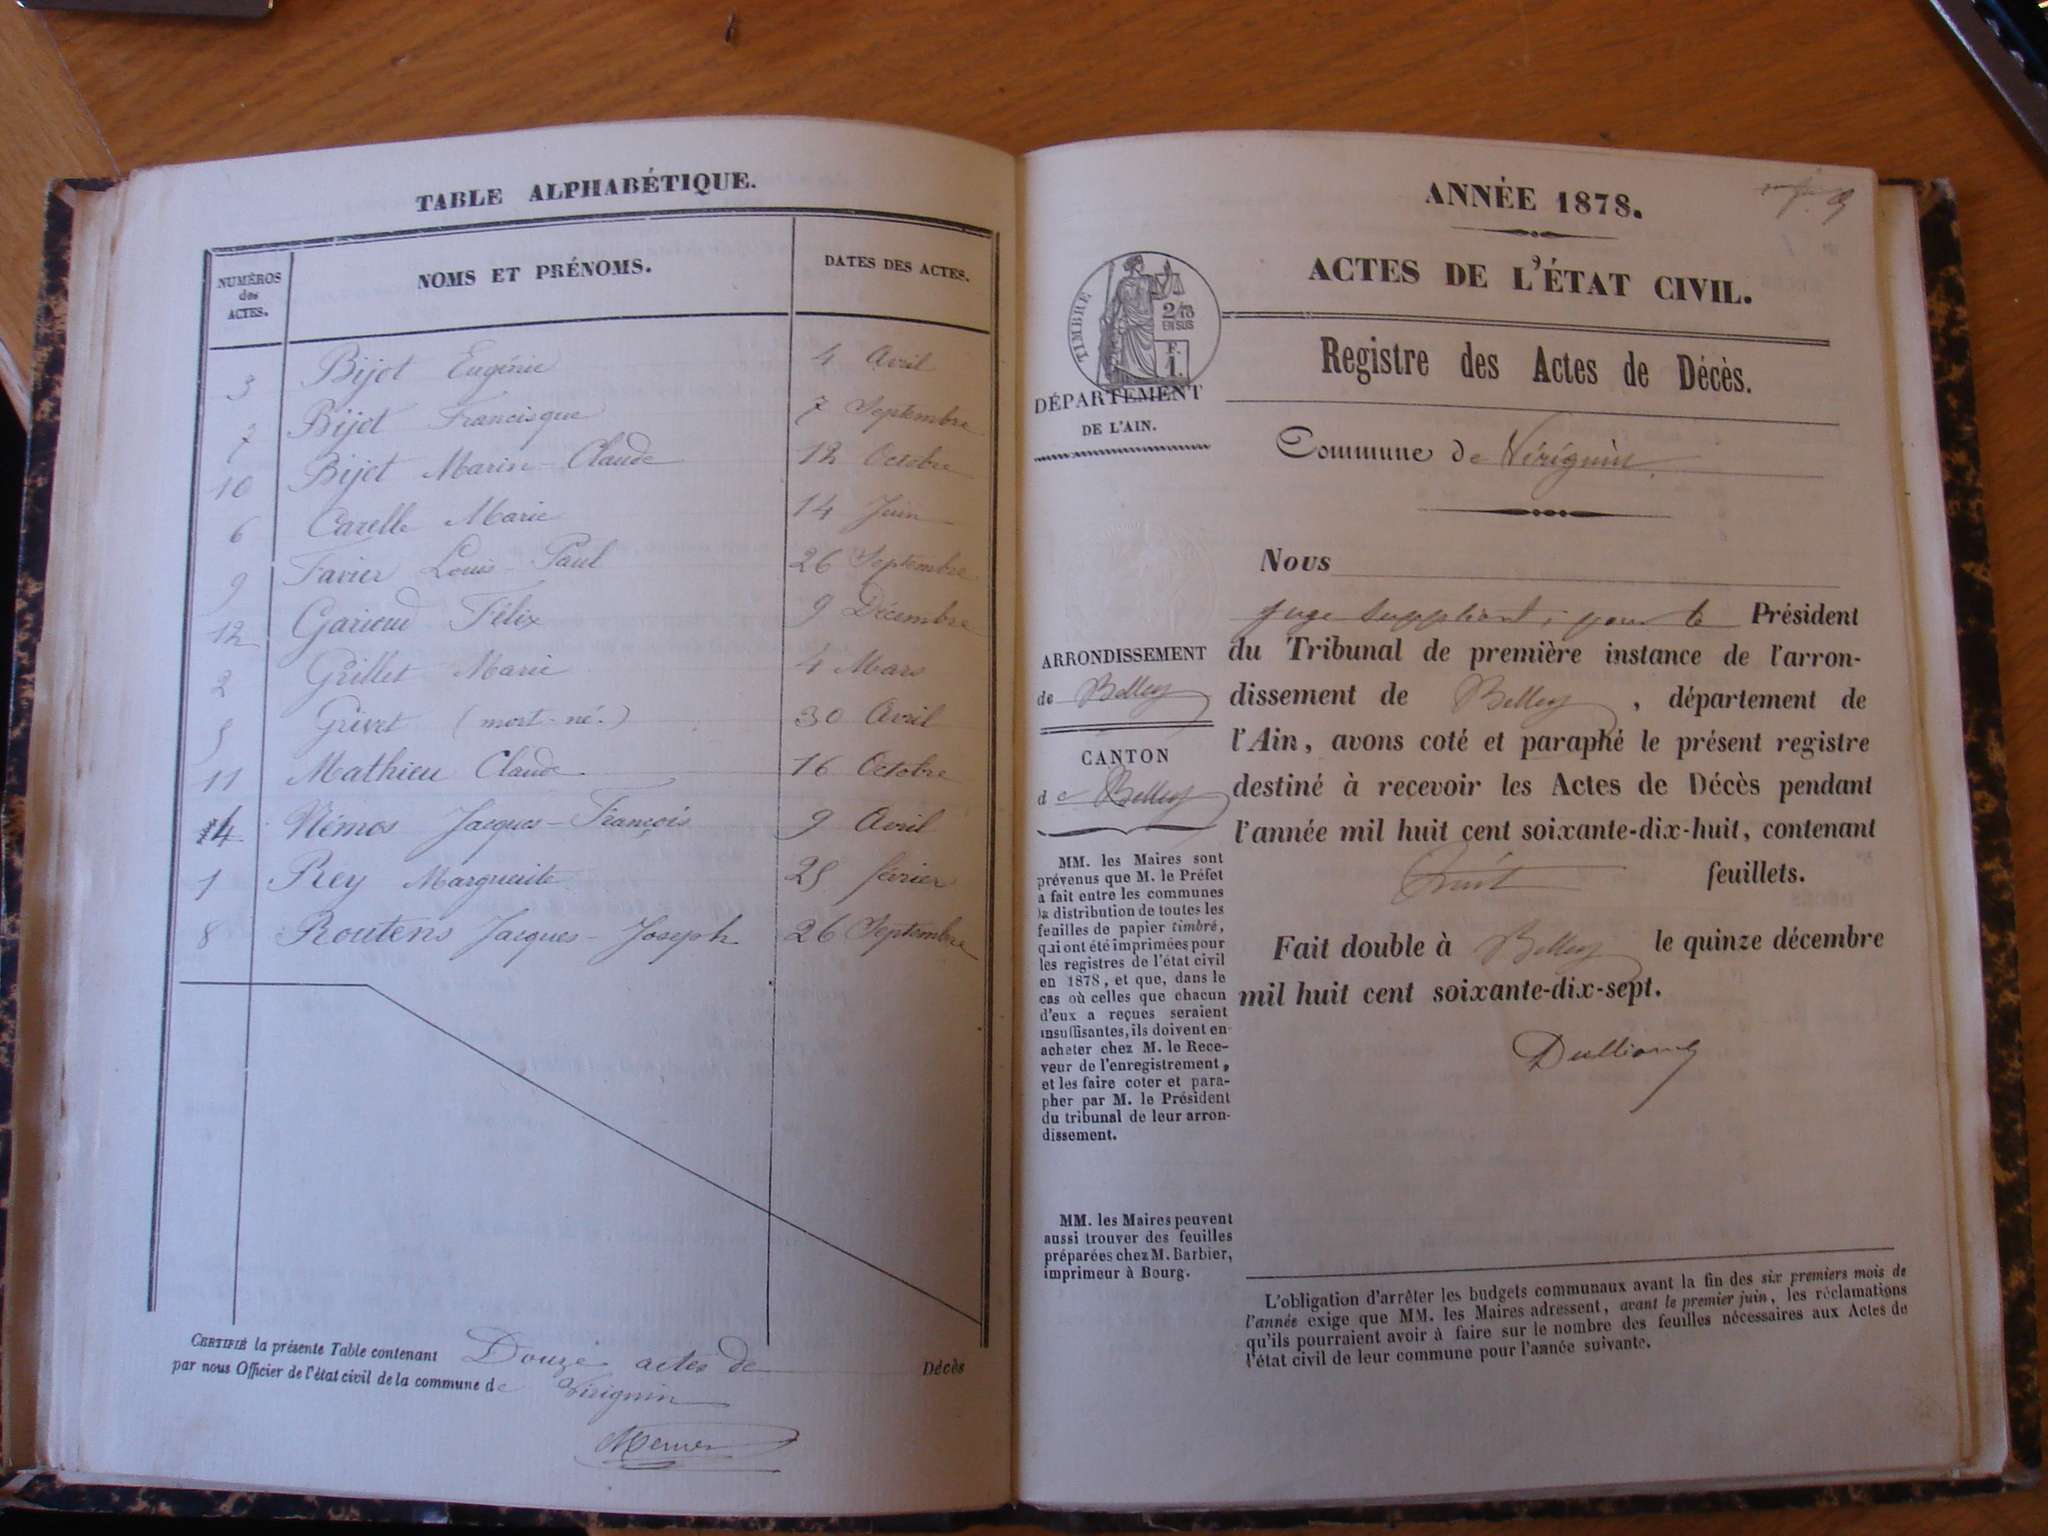 TABLE ALPHABÉTIQUE.
NUMÉROS
des
ACTES.
NOMS ET PRÉNOMS.
DATES DES ACTES.
3 Bijot Eugénie 4 Avril
7 Bijot Francisque 7 Septembre
10 Bijot Marin-Claude 12 Octobre
6 Carelle Marie 14 Juin
9 Favier Louis-Paul 26 Septembre
12 Garioud Félix 9 Décembre
2 Grillet Marie 4 Mars
5 Grivet (mort-né.) 30 Avril
11 Mathieu Claude 16 Octobre
4 Némos Jacques-François 9 Avril
1 Rey Marguerite 25 février
8 Routens Jacques-Joseph 26 Septembre
CERTIFIÉ la présente Table contenant Douze actes de Décès
par nous Officier de l'état civil de la commune de Virignin
ANNÉE 1878.
ACTES DE L'ÉTAT CIVIL.
TIMBRE
2/10
EN SUS
F.
1.
Registre des Actes de Décès.
DÉPARTEMENT
DE L'AIN.
Commune de Virignin
Nous
juge suppléant, pour le Président
du Tribunal de première instance de l'arron-
dissement de Belley, département de
l'Ain, avons coté et paraphé le présent registre
destiné à recevoir les Actes de Décès pendant
l'année mil huit cent soixante-dix-huit, contenant
huit feuillets.
Fait double à Belley le quinze décembre
mil huit cent soixante-dix-sept.
ARRONDISSEMENT
de Belley
CANTON
de Belley
MM. les Maires sont
prévenus que M. le Préfet
a fait entre les communes
la distribution de toutes les
feuilles de papier timbré,
qui ont été imprimées pour
les registres de l'état civil
en 1878, et que, dans le
cas où celles que chacun
d'eux a reçues seraient
insuffisantes, ils doivent en
acheter chez M. le Rece-
veur de l'enregistrement,
et les faire coter et para-
pher par M. le Président
du tribunal de leur arron-
dissement.
MM. les Maires peuvent
aussi trouver des feuilles
préparées chez M. Barbier,
imprimeur à Bourg.
L'obligation d'arrêter les budgets communaux avant la fin des six premiers mois de
l'année exige que MM. les Maires adressent, avant le premier juin, les réclamations
qu'ils pourraient avoir à faire sur le nombre des feuilles nécessaires aux Actes de
l'état civil de leur commune pour l'année suivante.